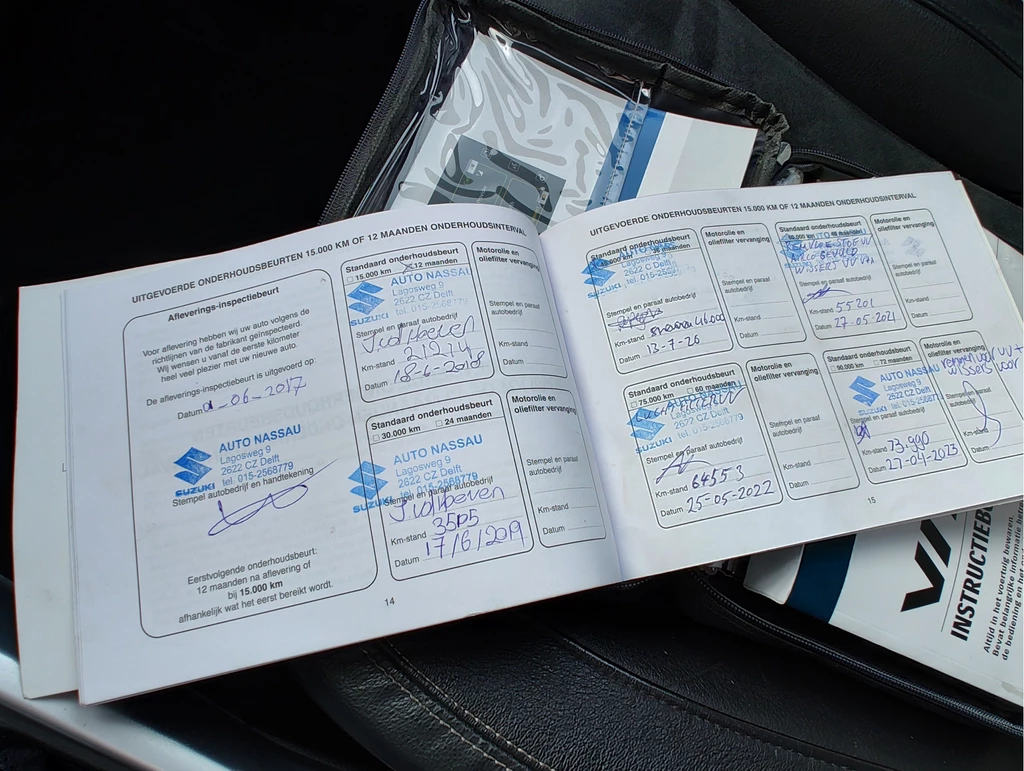 UITGEVOERDE ONDERHOUDSBEURTEN 15.000 KM OF 12 MAANDEN ONDERHOUDSINTERVAL
Afleverings-inspectiebeurt
Voor aflevering hebben wij uw auto volgens de
richtlijnen van de fabrikant geïnspecteerd.
Wij wensen u vanaf de eerste kilometer
heel veel plezier met uw nieuwe auto.
De aflevering-inspectiebeurt is uitgevoerd op:
Datum -06-2017
AUTO NASSAU
Lagosweg 9
2622 CZ Delft
tel. 015-2568779
SUZUKI
Stempel autobedrijf en handtekening
Eerstvolgende onderhoudsbeurt:
12 maanden na aflevering of
bij 15.000 km
afhankelijk wat het eerst bereikt wordt.
Standaard onderhoudsbeurt
15.000 km 12 maanden
AUTO NASSAU
Lagosweg 9
2622 CZ Delft
tel. 015-2568779
SUZUKI
Stempel en paraaf autobedrijf
Km-stand 21214
Datum 18-6-2018
Motorolie en
oliefilter vervanging
Stempel en paraaf
autobedrijf
Km-stand
Datum
Standaard onderhoudsbeurt
30.000 km 24 maanden
AUTO NASSAU
Lagosweg 9
2622 CZ Delft
tel. 015-2568779
SUZUKI
Stempel en paraaf autobedrijf
Km-stand
Datum 17/6/2019
Motorolie en
oliefilter vervanging
Stempel en paraaf
autobedrijf
Km-stand
Datum
14
UITGEVOERDE ONDERHOUDSBEURTEN 15.000 KM OF 12 MAANDEN ONDERHOUDSINTERVAL
Standaard onderhoudsbeurt
36 maanden
AUTO NASSAU
Lagosweg 9
2622 CZ Delft
tel. 015-2568779
SUZUKI
Stempel en paraaf autobedrijf
Km-stand 46.000
Datum 13-7-20
Motorolie en
oliefilter vervanging
Stempel en paraaf
autobedrijf
Km-stand
Datum
Standaard onderhoudsbeurt
60.000 km 48 maanden
Stempel en paraaf autobedrijf
Km-stand 55201
Datum 27-05-2021
Motorolie en
oliefilter vervanging
Stempel en paraaf
autobedrijf
Km-stand
Datum
Standaard onderhoudsbeurt
75.000 km 60 maanden
AUTO NASSAU
Lagosweg 9
2622 CZ Delft
tel. 015-2568779
SUZUKI
Stempel en paraaf autobedrijf
Km-stand 64553
Datum 25-05-2022
Motorolie en
oliefilter vervanging
Stempel en paraaf
autobedrijf
Km-stand
Datum
Standaard onderhoudsbeurt
90.000 km 72 maanden
AUTO NASSAU
Lagosweg 9
2622 CZ Delft
tel. 015-2568779
SUZUKI
Stempel en paraaf autobedrijf
Km-stand 73.990
Datum 27-04-2023
Motorolie en
oliefilter vervanging
remmen voor VV +
wissers voor
Stempel en paraaf
autobedrijf
Km-stand
Datum
15
INSTRUCTIEB
Altijd in het voertuig bewaren.
Bevat belangrijke informatie betre
de bediening en het on